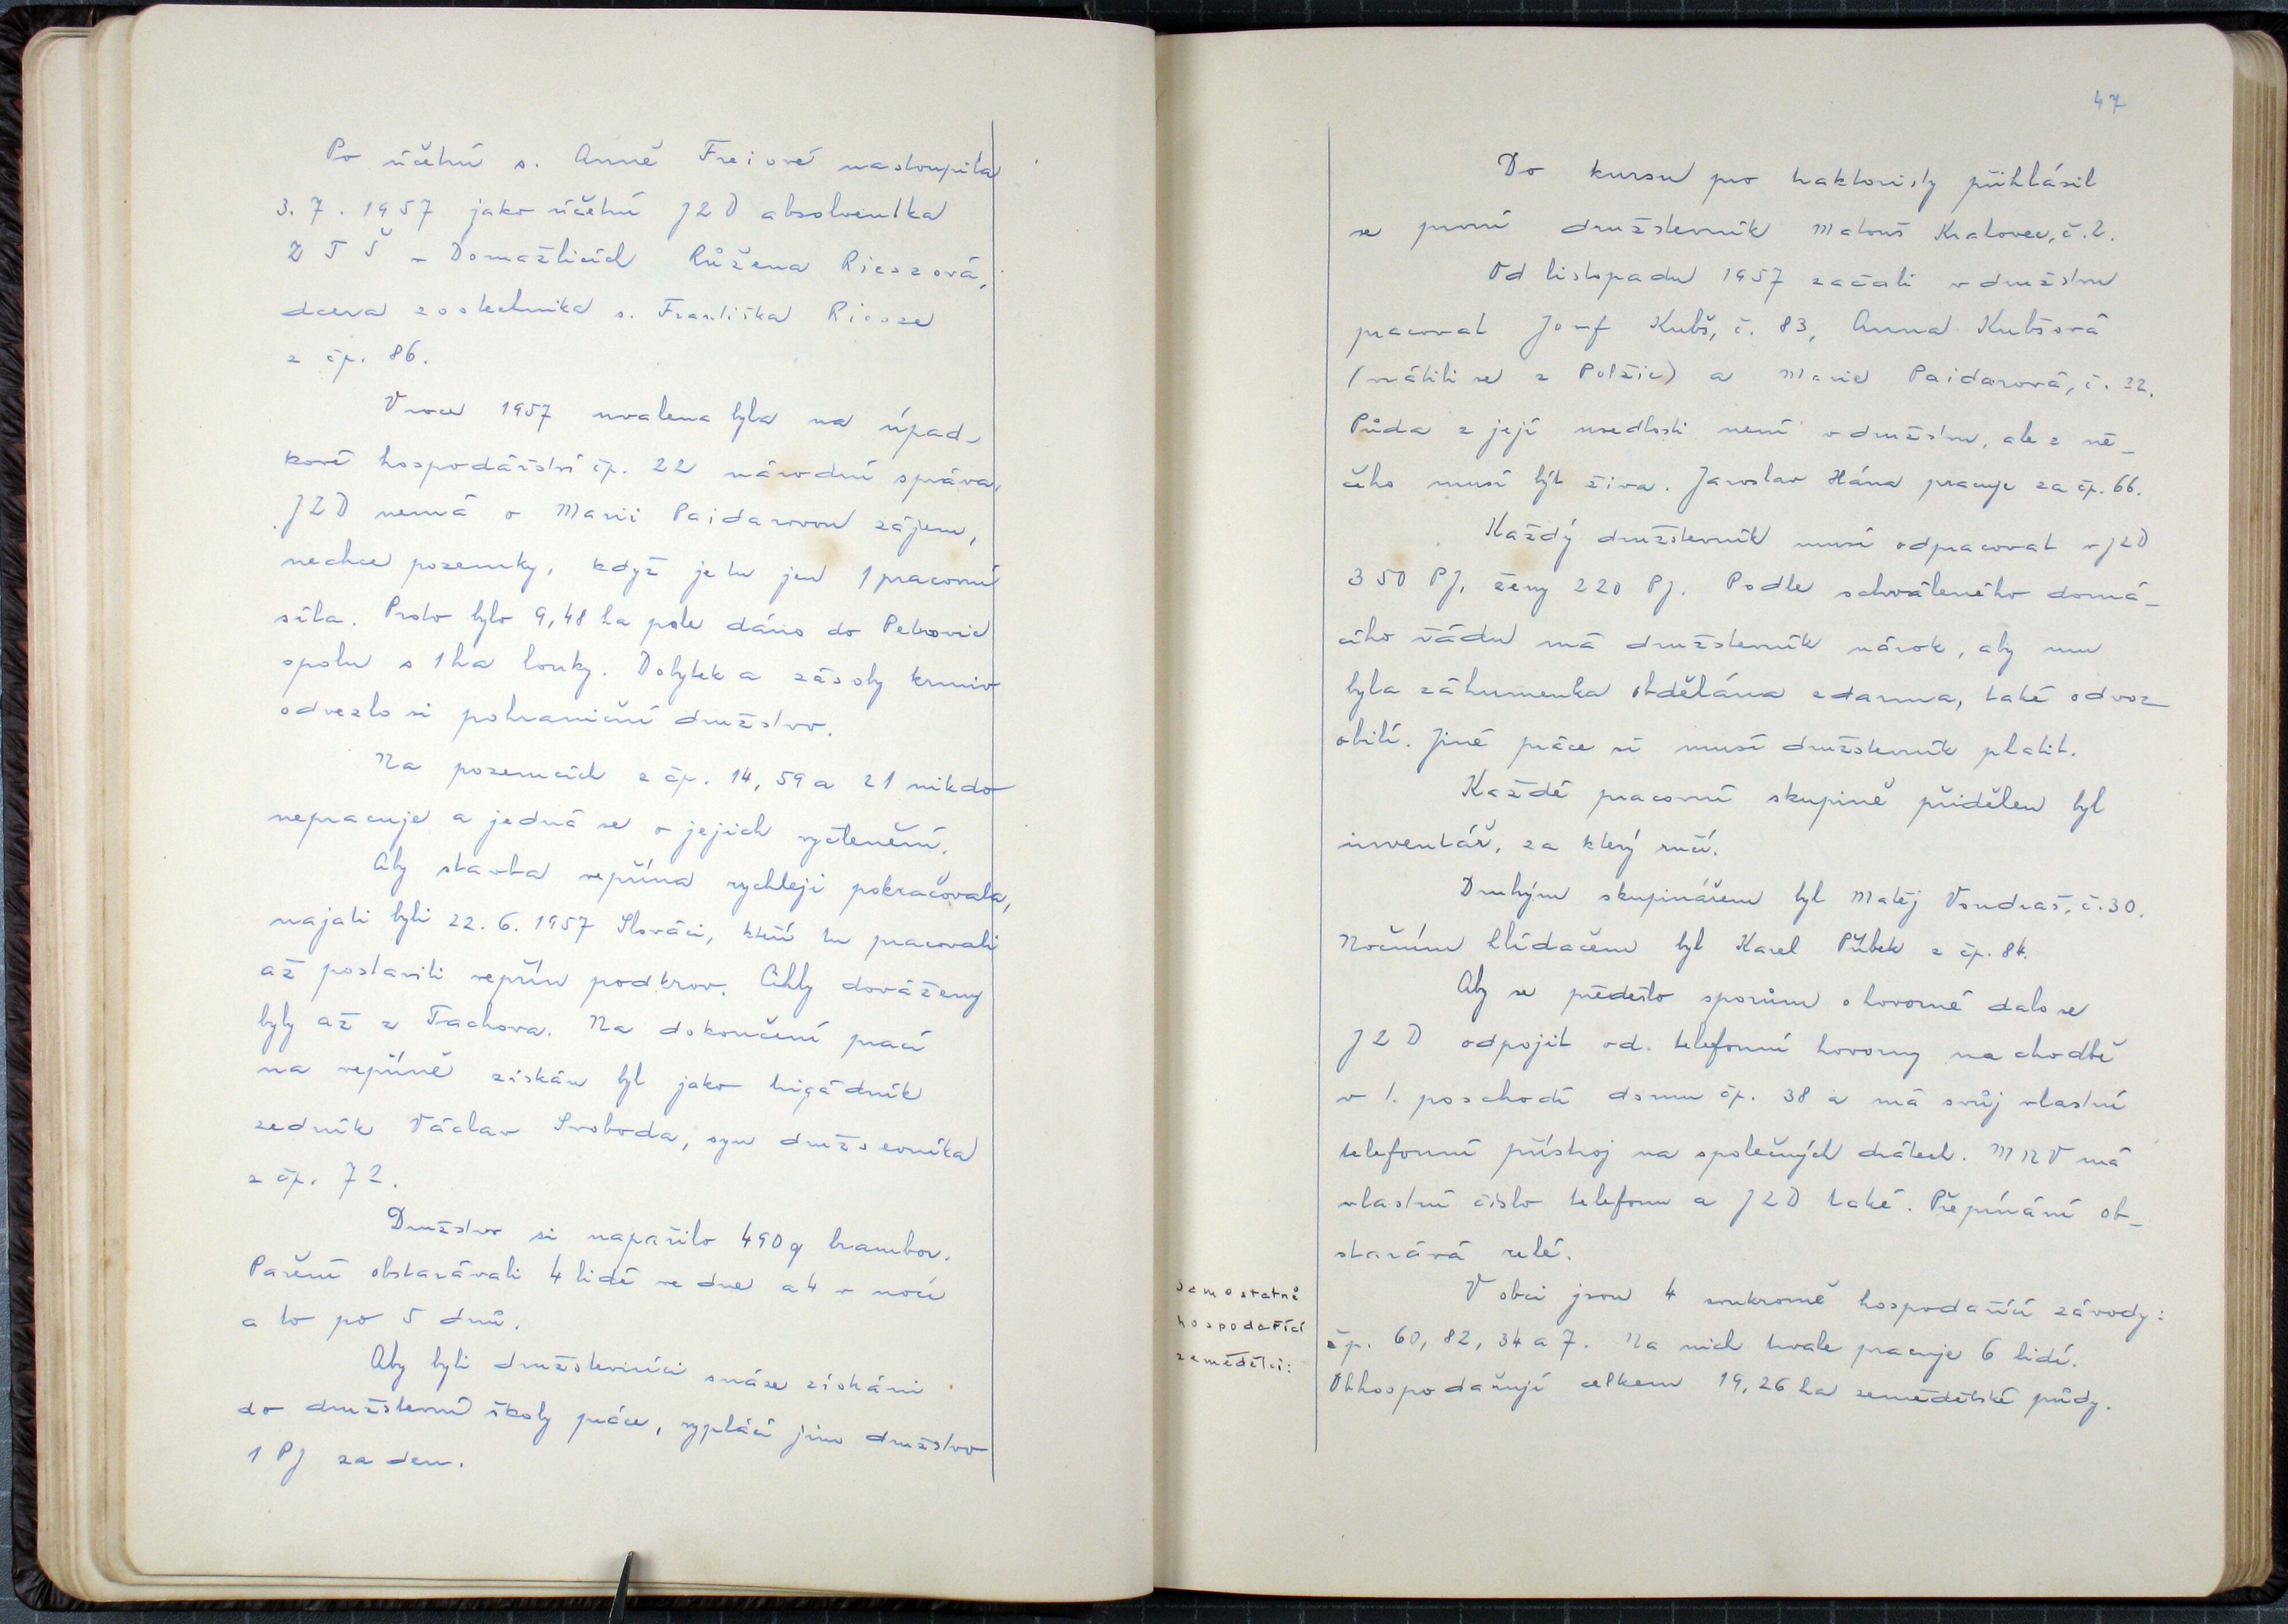 Po účetní s. Anně Freiové nastoupila
3. 7. 1957 jako účetní JZD absolventka
ZTŠ - Domažlicích Růžena Rieszová,
dcera zootechnika s. Františka Riesze
z čp. 86.
V roce 1957 uvalena byla na úpad-
kové hospodářství čp. 22 národní správa.
JZD nemá o Marii Paidarovou zájem,
nechce pozemky, když je tu jen 1 pracovní
síla. Proto bylo 9,48 ha pole dáno do Petrovic
spolu s 1 ha louky. Dobytek a zásoby krmiv
odvezlo si pohraniční družstvo.
Na pozemcích z čp. 14, 59 a 21 nikdo
nepracuje a jedná se o jejich vyčlenění.
Aby stavba vepřína rychleji pokračovala,
najati byli 22. 6. 1957 Slováci, kteří tu pracovali
až postavili vepřín pod krov. Cihly dováženy
byly až z Tachova. Na dokončení prací
na vepříně získán byl jako brigádník
zedník Václav Svoboda, syn družsevníka
z čp. 72.
Družstvo si napařilo 490 q brambor.
Paření obstarávali 4 lidé ve dne a 4 v noci
a to po 5 dnů.
Aby byli družstevníci snáze získáni
do družstevní školy práce, vyplácí jim družstvo
1 PJ za den.
47
Do kursu pro traktoristy přihlásil
se první družstevník Matouš Kralovec, č. 2.
Od listopadu 1957 začali v družstvu
pracovat Josef Kubš, č. 83, Anna Kubšová
(vrátili se z Polžic) a Marie Paidarová, č. 22.
Půda z její usedlosti není v družstvu, ale z ně-
čeho musí být živa. Jaroslav Hána pracuje za čp. 66.
Každý družstevník musí odpracovat v JZD
350 PJ, ženy 220 PJ. Podle schváleného domá-
cího řádu má družstevník nárok, aby mu
byla záhumenka obdělána zdarma, také odvoz
obilí. Jiné práce si musí družstevník platit.
Každé pracovní skupině přidělen byl
inventář, za který ručí.
Druhým skupinářem byl Matěj Vondraš, č. 30.
Nočním hlídačem byl Karel Přibek z čp. 84.
Aby se předešlo sporům o hovorné dalo se
JZD odpojit od telefonní hovorny na chodbě
v 1. poschodí domu čp. 38 a má svůj vlastní
telefonní přístroj na společných drátech. MNV má
vlastní číslo telefonu a JZD také. Přepínání ob-
starává relé.
Samostatně
hospodařící
zemědělci:
V obci jsou 4 soukromě hospodařící závody:
čp. 60, 82, 34 a 7. Na nich trvale pracuje 6 lidí.
Obhospodařují celkem 19,26 ha zemědělské půdy.